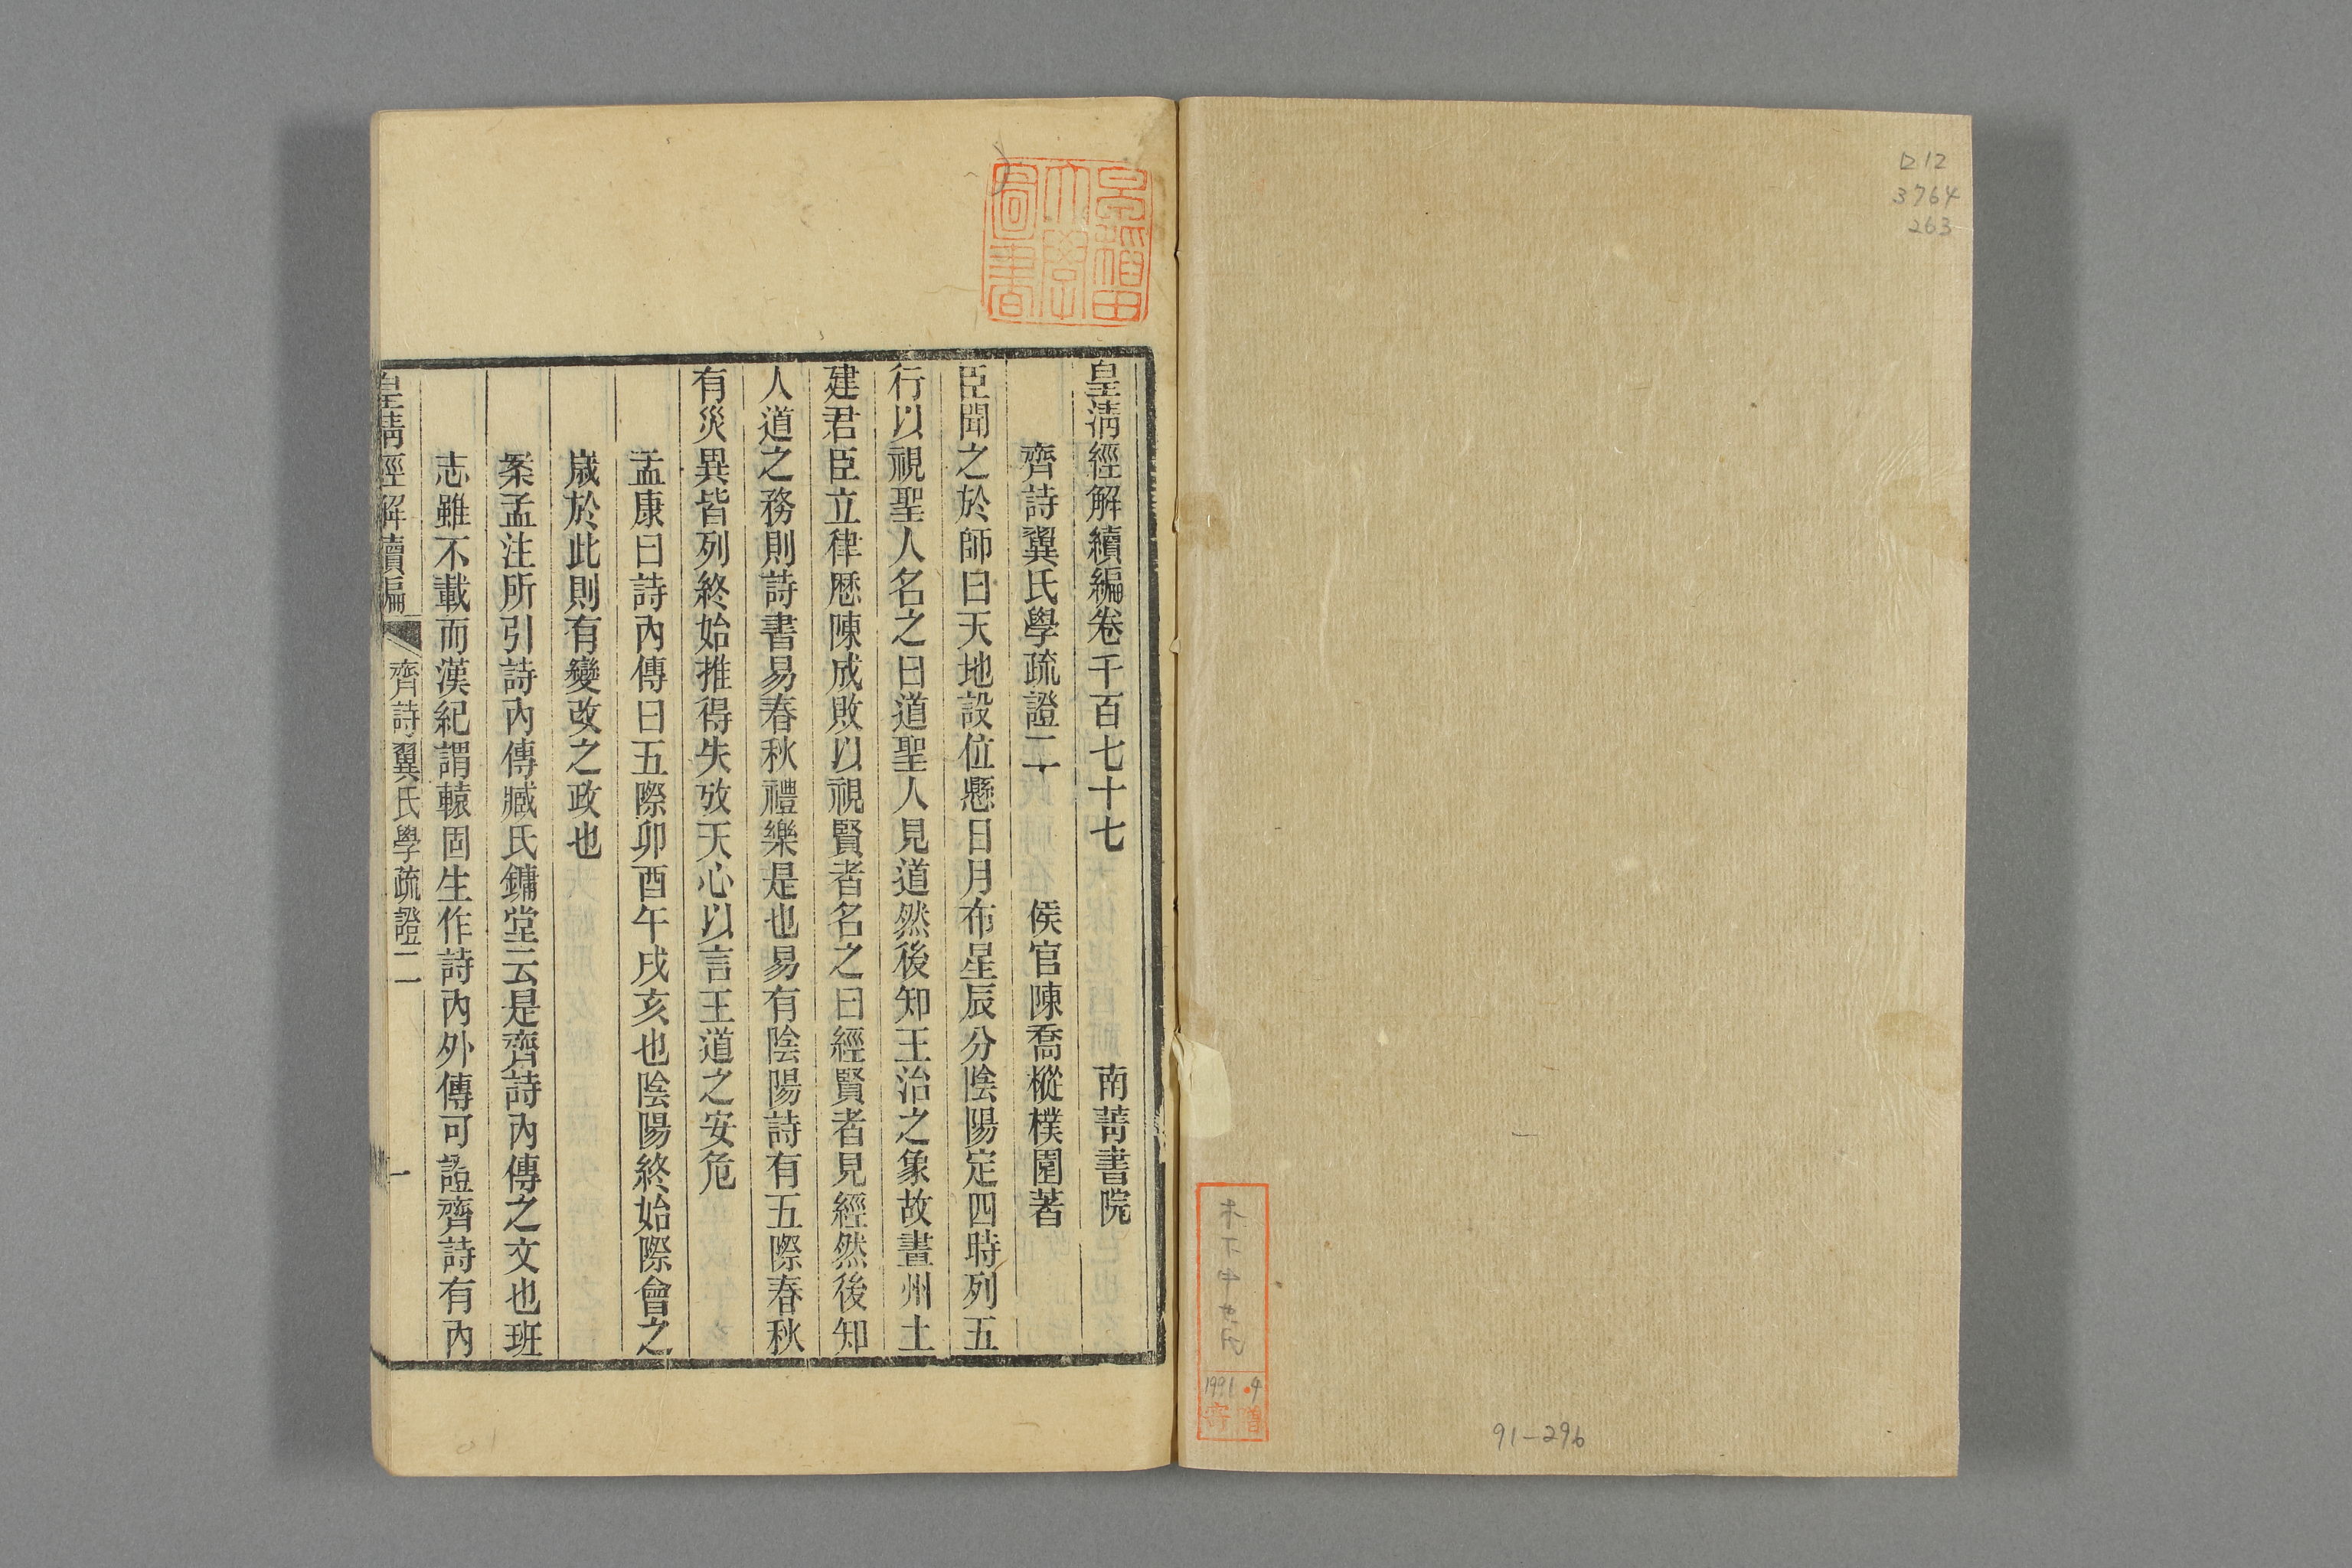 ロ12
3764
263
1991.4
寄贈
91-296
早稲田
大學
圖書
皇清經解續編卷千百七十七 南菁書院
齊詩翼氏學疏證二 侯官陳喬樅樸園著
臣聞之於師曰天地設位懸日月布星辰分陰陽定四時列五
行以視聖人名之曰道聖人見道然後知王治之象故畫州土
建君臣立律厯陳成敗以視賢者名之曰經賢者見經然後知
人道之務則詩書易春秋禮樂是也易有陰陽詩有五際春秋
有災異皆列終始推得失攷天心以言王道之安危
孟康曰詩內傳曰五際卯酉午戌亥也陰陽終始際會之
歲於此則有變改之政也
案孟注所引詩內傳臧氏鏞堂云是齊詩內傳之文也班
志雖不載而漢紀謂轅固生作詩內外傳可證齊詩有內
皇清經解續編 齊詩翼氏學疏證二 一